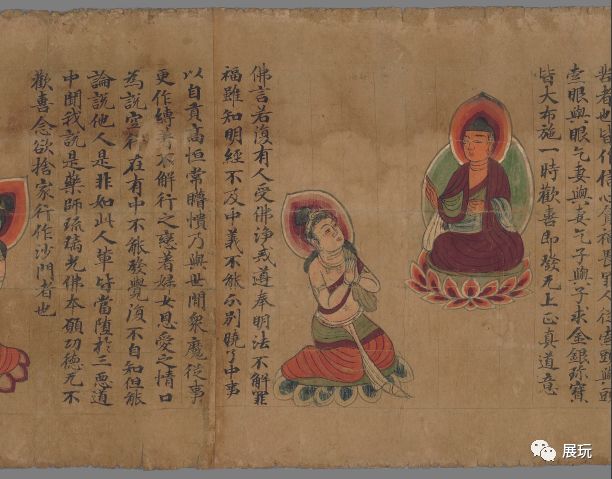 者也皆作信心
索眼與眼乞妻與妻乞子與子求金銀珎寶
皆大布施一時歡喜即發无上正真道意
佛言若復有人受佛淨戒遵奉明法不解罪
福雖知明經不及中義不能分別曉了中事
以自貢高恒常瞪憒乃與世間衆魔從事
更作縛著不解行之戀著婦女恩愛之情口
為說空行在有中不能發覺復不自知但能
論說他人是非如此人輩皆當墮於三惡道
中聞我說是藥師琉璃光佛本願功德无不
歡喜念欲捨家行作沙門者也
展玩